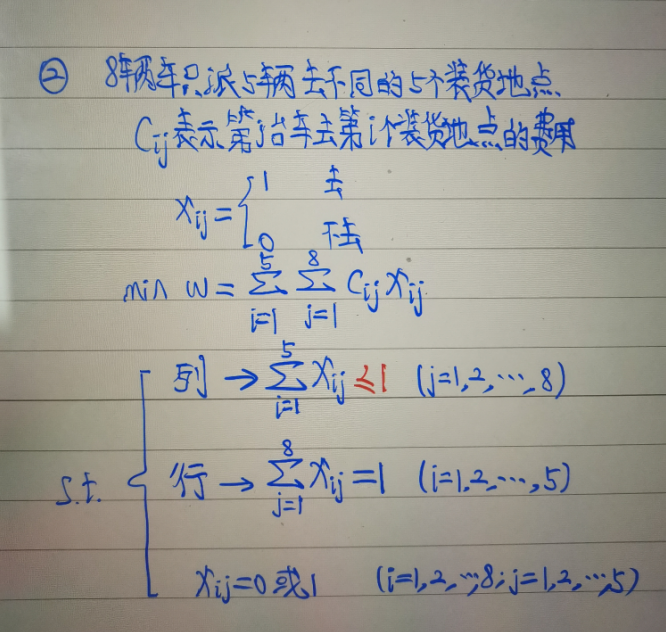 ② 8辆车只派5辆去不同的5个装货地点
Cij表示第j台车去第i个装货地点的费用
xij = { 1 去
0 不去
min w = ∑_{i=1}^{5} ∑_{j=1}^{8} Cij xij
列 → ∑_{i=1}^{5} xij ≤ 1 (j=1,2,…,8)
s.t. { 行 → ∑_{j=1}^{8} xij = 1 (i=1,2,…,5)
xij = 0 或 1 (i=1,2,…,8; j=1,2,…,5)